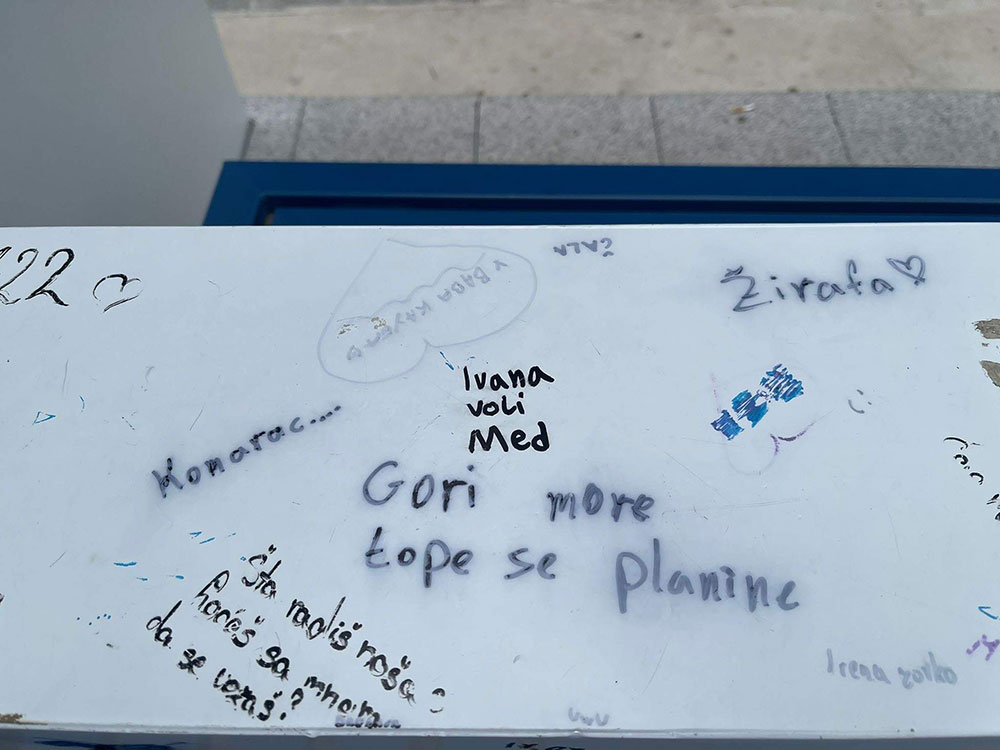 122
ČALA
Žirafa
Ivana
voli
Med
Konarac....
Gori more
tope se planine
Šta radiš
hoćeš sa mnom
da se vozaš?
Irena
UWU